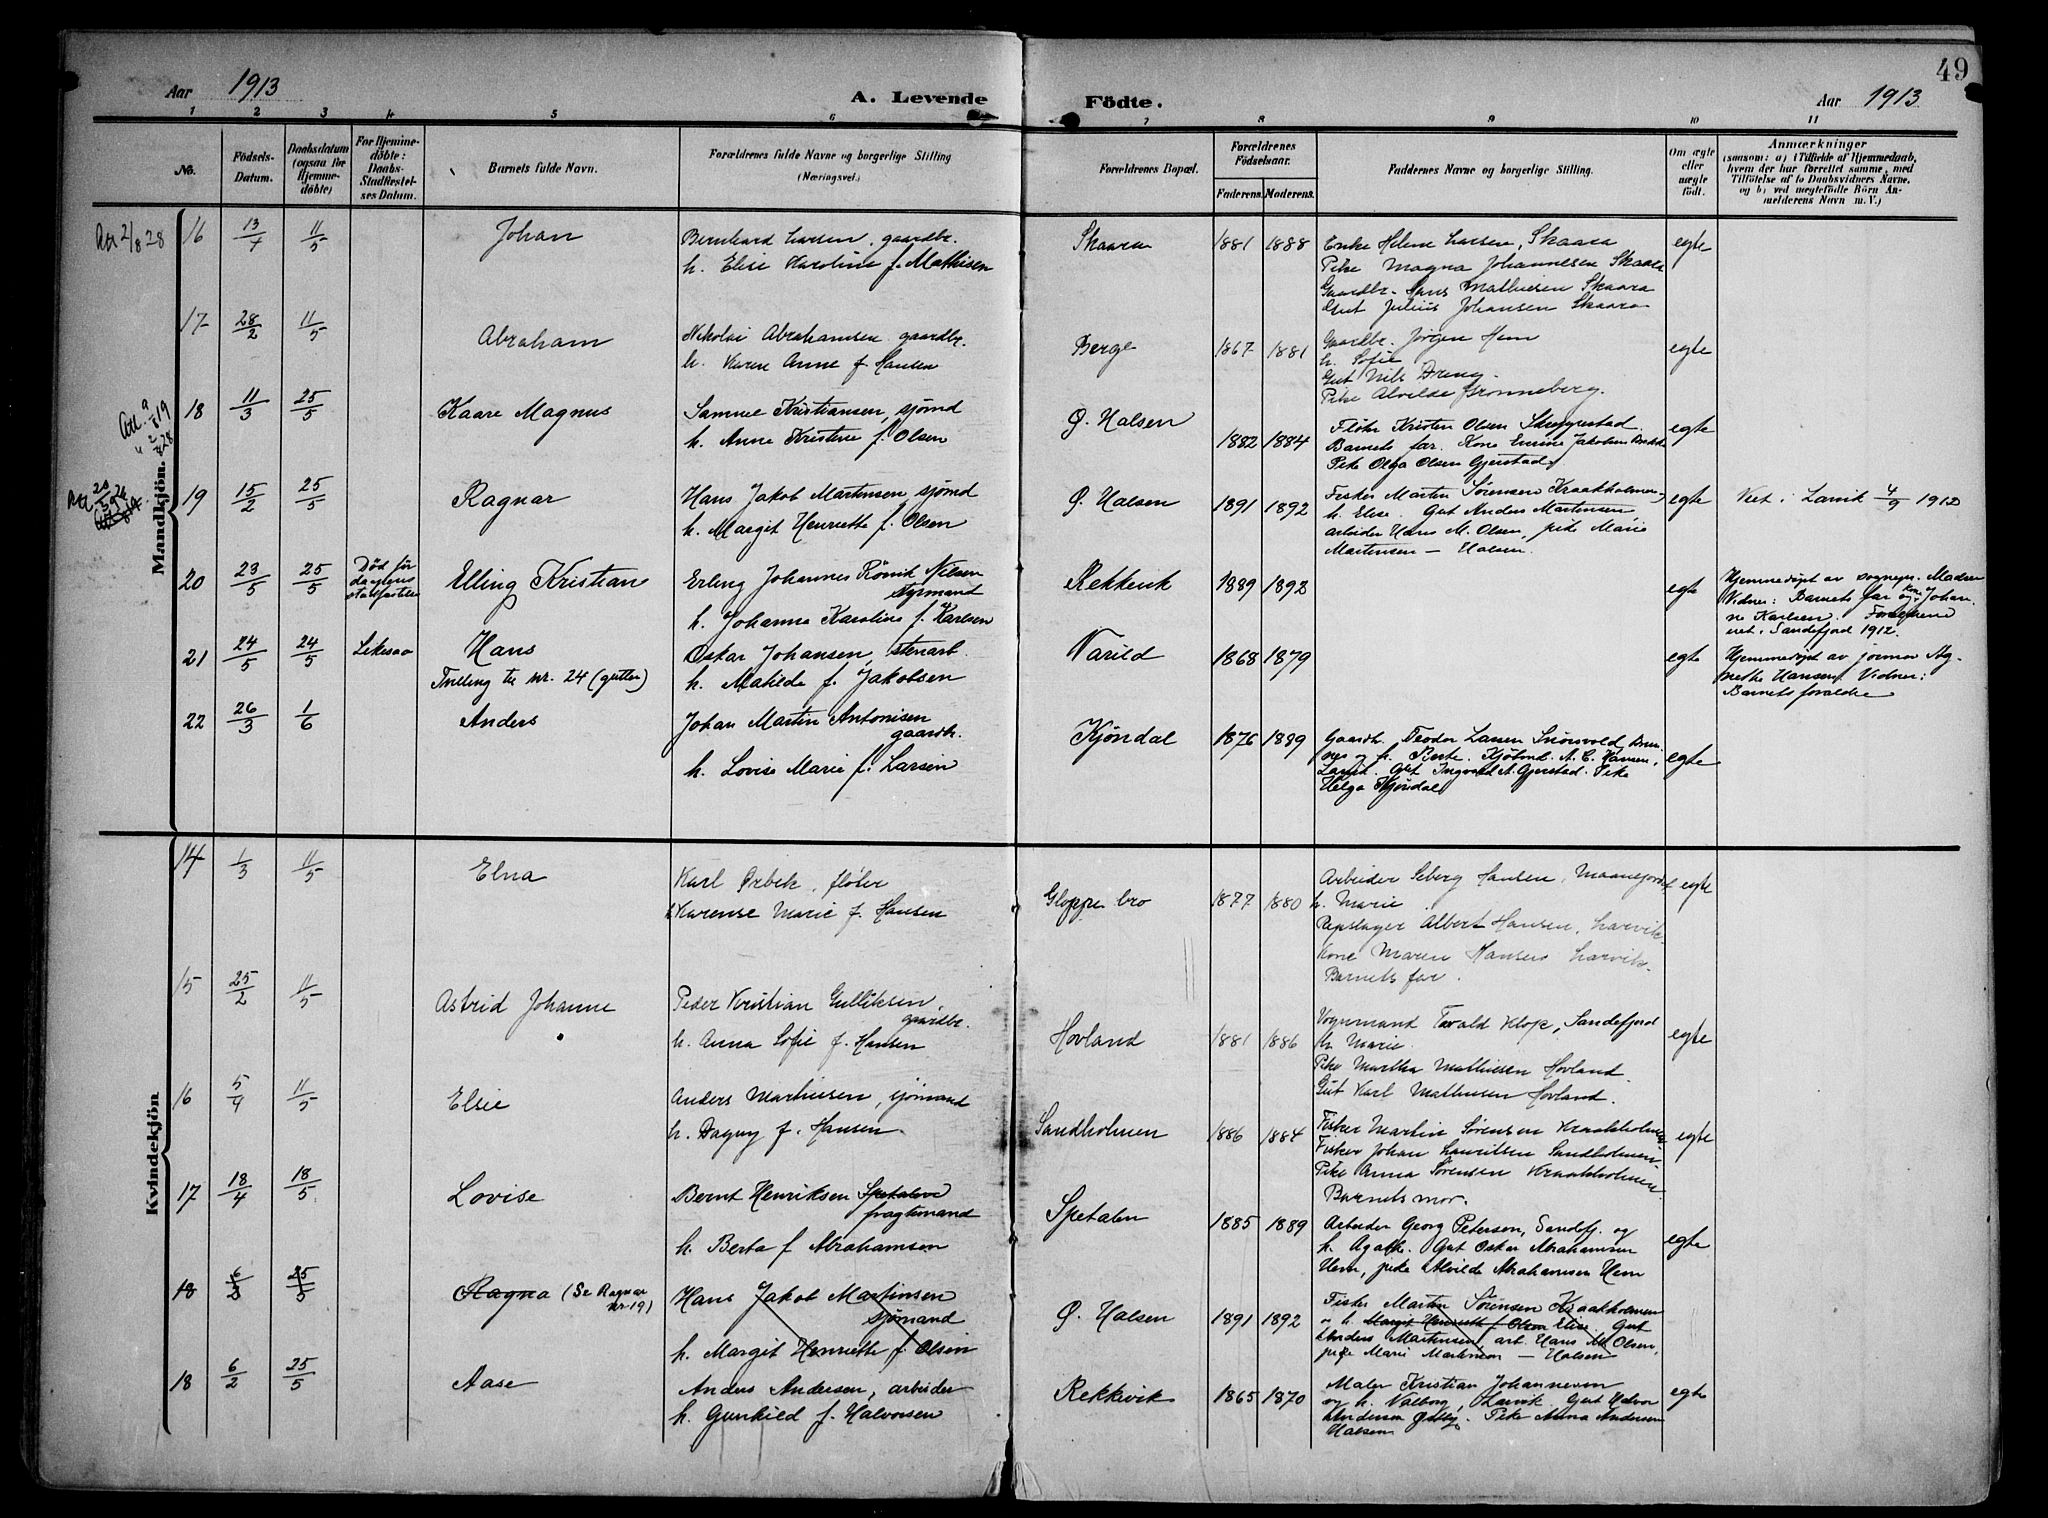 49
Aar 1913
A. Levende Födte.
Aar 1913
1 2 3 4 5 6 7 8 9 10 11
No.
Födsels-
Datum.
Daabsdatum
(ogsaa for
Hjemme-
döbte)
For Hjemme-
döbte:
Daabs-
Stadfæstel-
ses Datum.
Barnets fulde Navn.
Forældrenes fulde Navne og borgerlige Stilling
(Næringsvei.)
Forældrenes Bopæl.
Forældrenes
Födselsaar.
Faderens. Moderens.
Faddernes Navne og borgerlige Stilling.
Om ægte
eller
uægte
födt.
Anmærkninger
(saasom: a) i Tilfælde af Hjemmedaab,
hvem der har forrettet samme, med
Tilföielse af to Daabsvidners Navne,
og b) ved uægtefödte Börn An-
melderens Navn m. V.)
Mandkjön.
2/8 28
16 13/4 11/5 Johan
Bernhard Larsen, gaardbr.
h. Elise Karoline f. Mathisen
Skaara 1881 1888
Enke Helene Larsen, Skaara
Pike Magna Johannesen Skaara
Gaardbr. Hans Mathiesen Skaara
Gut Julius Johansen Skaara
egte
17 28/2 11/5 Abraham
Nikolai Abrahamsen gaardbr.
h. Karen Anne f. Hansen
Berge 1867 1881
Gaardbr. Jörgen Hem
h. Sofie
Gut Nils Dreng.
Pike Alvilde Bronneberg.
egte
18 11/3 25/5 Kaare Magnus
Samuel Kristiansen, sjömd
h. Anne Kristine f. Olsen
Ø. Halsen 1882 1884
Fløter Kristen Olsen Skeggestad.
Barnets far. Kone Emine Jakobsen
Pike Olga Olsen Gjerstad
egte
19 15/2 25/5 Ragnar
Hans Jakob Martinsen sjömd
h. Margit Henriette f. Olsen
Ø. Halsen 1891 1892
Fisker Martin Sørensen Kraakholmen,
h. Elise. Gut Anders Martinsen
arbeider Hans M. Olsen, pike Marie
Martinsen — Halsen.
egte Viet i Larvik 4/9 1912
20 23/5 25/5 Död för
daabens
stadfæstelse
Elling Kristian
Erling Johannes Rönvik Nilsen
styrmand
h. Johanna Karoline f. Karlsen
Rekkevik 1889 1892
egte
Hjemmedöpt av sognepr. Madsen
Vidner: Barnets far og kone Johan-
ne Karlsen. Forældrene
viet i Sandefjord 1912.
21 24/5 24/5 Likesaa Hans
Tvilling til nr. 24 (gutter)
Oskar Johansen, stenarb.
h. Matilde f. Jakobsen
Varild 1868 1879
egte
Hjemmedöpt av jormor Ag-
nethe Hansen Vidner:
Barnets foraldre
22 26/3 1/6 Anders
Johan Martin Antonisen
gaardb.
h. Lovise Marie f. Larsen
Kjöndal 1876 1889
Gaardb. Teodor Larsen
og h. Berte. Kjöbmd. A. C. Hansen,
Larvik. Gut Ingvald A. Gjerstad. Pike
Helga Kjöndal
egte
Kvindekjön
14 1/3 11/5 Elna
Karl Ørbek, fløter
h. Karense Marie f. Hansen
Gloppe bro 1877 1880
Arbeider Seberg Hansen, Maanejordet
h. Marie
Repslager Albert Hansen, Larvik.
Kone Maren Hansen Larvik.
Barnets far.
egte
15 25/2 11/5 Astrid Johanne
Peder Kristian Gulliksen,
gaardbr.
h. Anna Sofie f. Hansen
Hovland 1881 1886
Vognmand Tovald Klop, Sandefjord
h. Marie.
Pike Martha Mathiesen Hovland.
Gut Karl Mathiesen Hovland.
egte
16 5/4 11/5 Elsie
Anders Mathiesen, sjömand
h. Dagny f. Hansen
Sandholmen 1886 1884
Fisker Martin Sørensen Kraakholmen
Fisker Johan Lauritsen Sandholmen
Pike Anna Sørensen Kraakholmen
Barnets mor.
egte
17 18/4 18/5 Lovise
Bernt Henriksen Spetalen
fragtemand
h. Berta f. Abrahamsen
Spetalen 1885 1889
Arbeider Georg Peterson, Sandefj. og
h. Agathe. Gut Oskar Abrahamsen
Hem, pike Alvilde Abrahamsen Hem
egte
18 6/2 25/5 Ragna (Se Ragnar
nr. 19)
Hans Jakob Martinsen
sjömand
h. Margit Henriette f. Olsen
Ø. Halsen 1891 1892
Fisker Martin Sørensen Kraakholmen
og h. Margit Henriette f. Olsen Elise. Gut
Anders Martinsen, arb. Hans M. Olsen,
pike Marie Martinsen — Halsen
18 6/2 25/5 Aase
Anders Andersen, arbeider
h. Gunhild f. Halvorsen
Rekkevik 1865 1870
Maler Kristian Johannesen
og h. Valborg, Larvik. Gut Halvor
Andersen Østby. Pike Anna Andersen
Halsen
egte